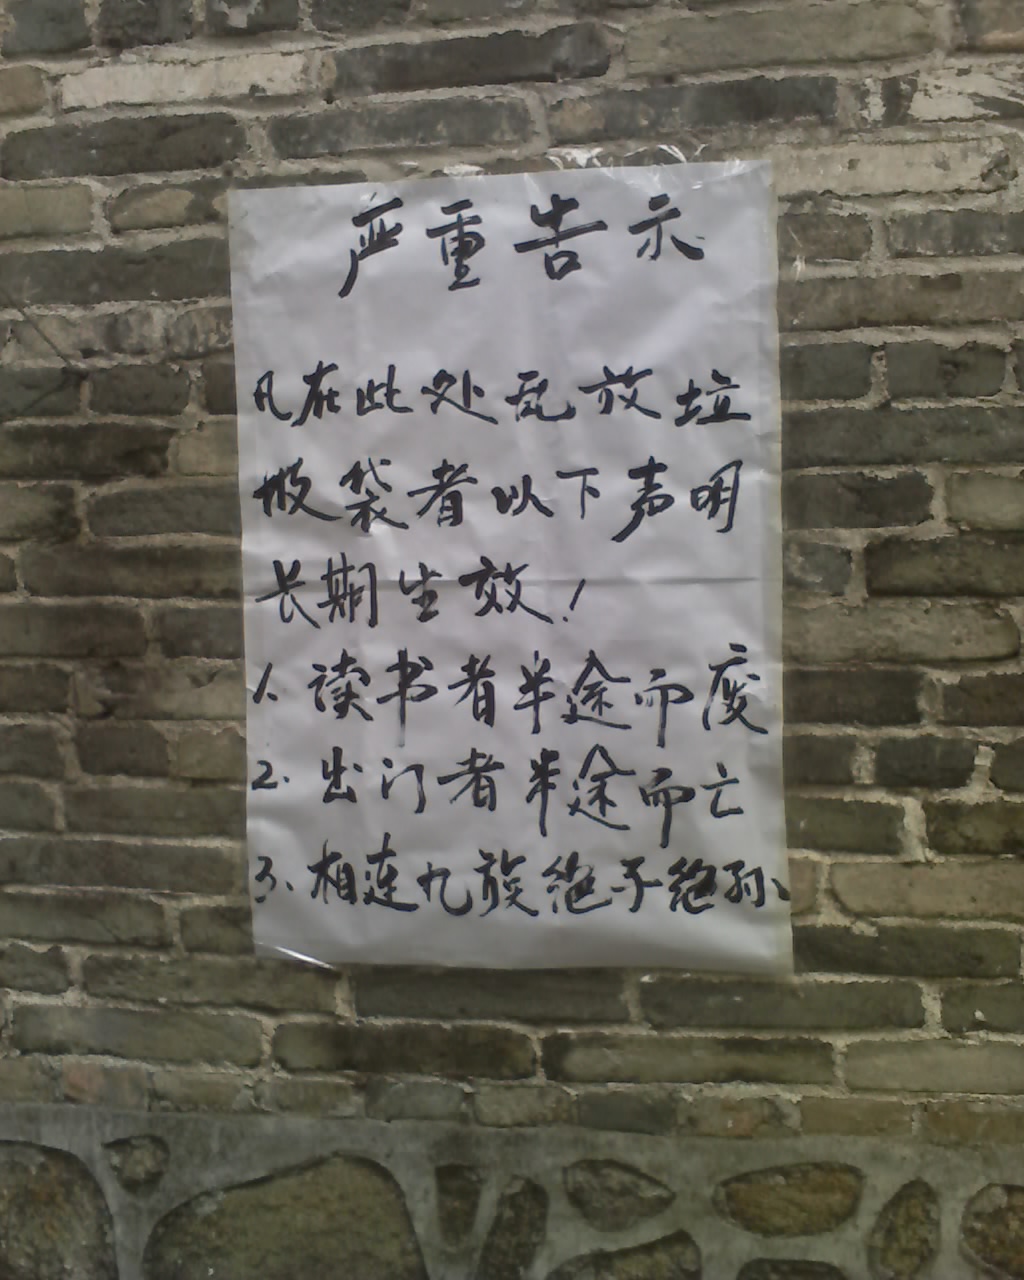 严重告示
凡在此处乱放垃
圾袋者以下声明
长期生效!
1、读书者半途而废
2. 出门者半途而亡
3、相连九族绝子绝孙、